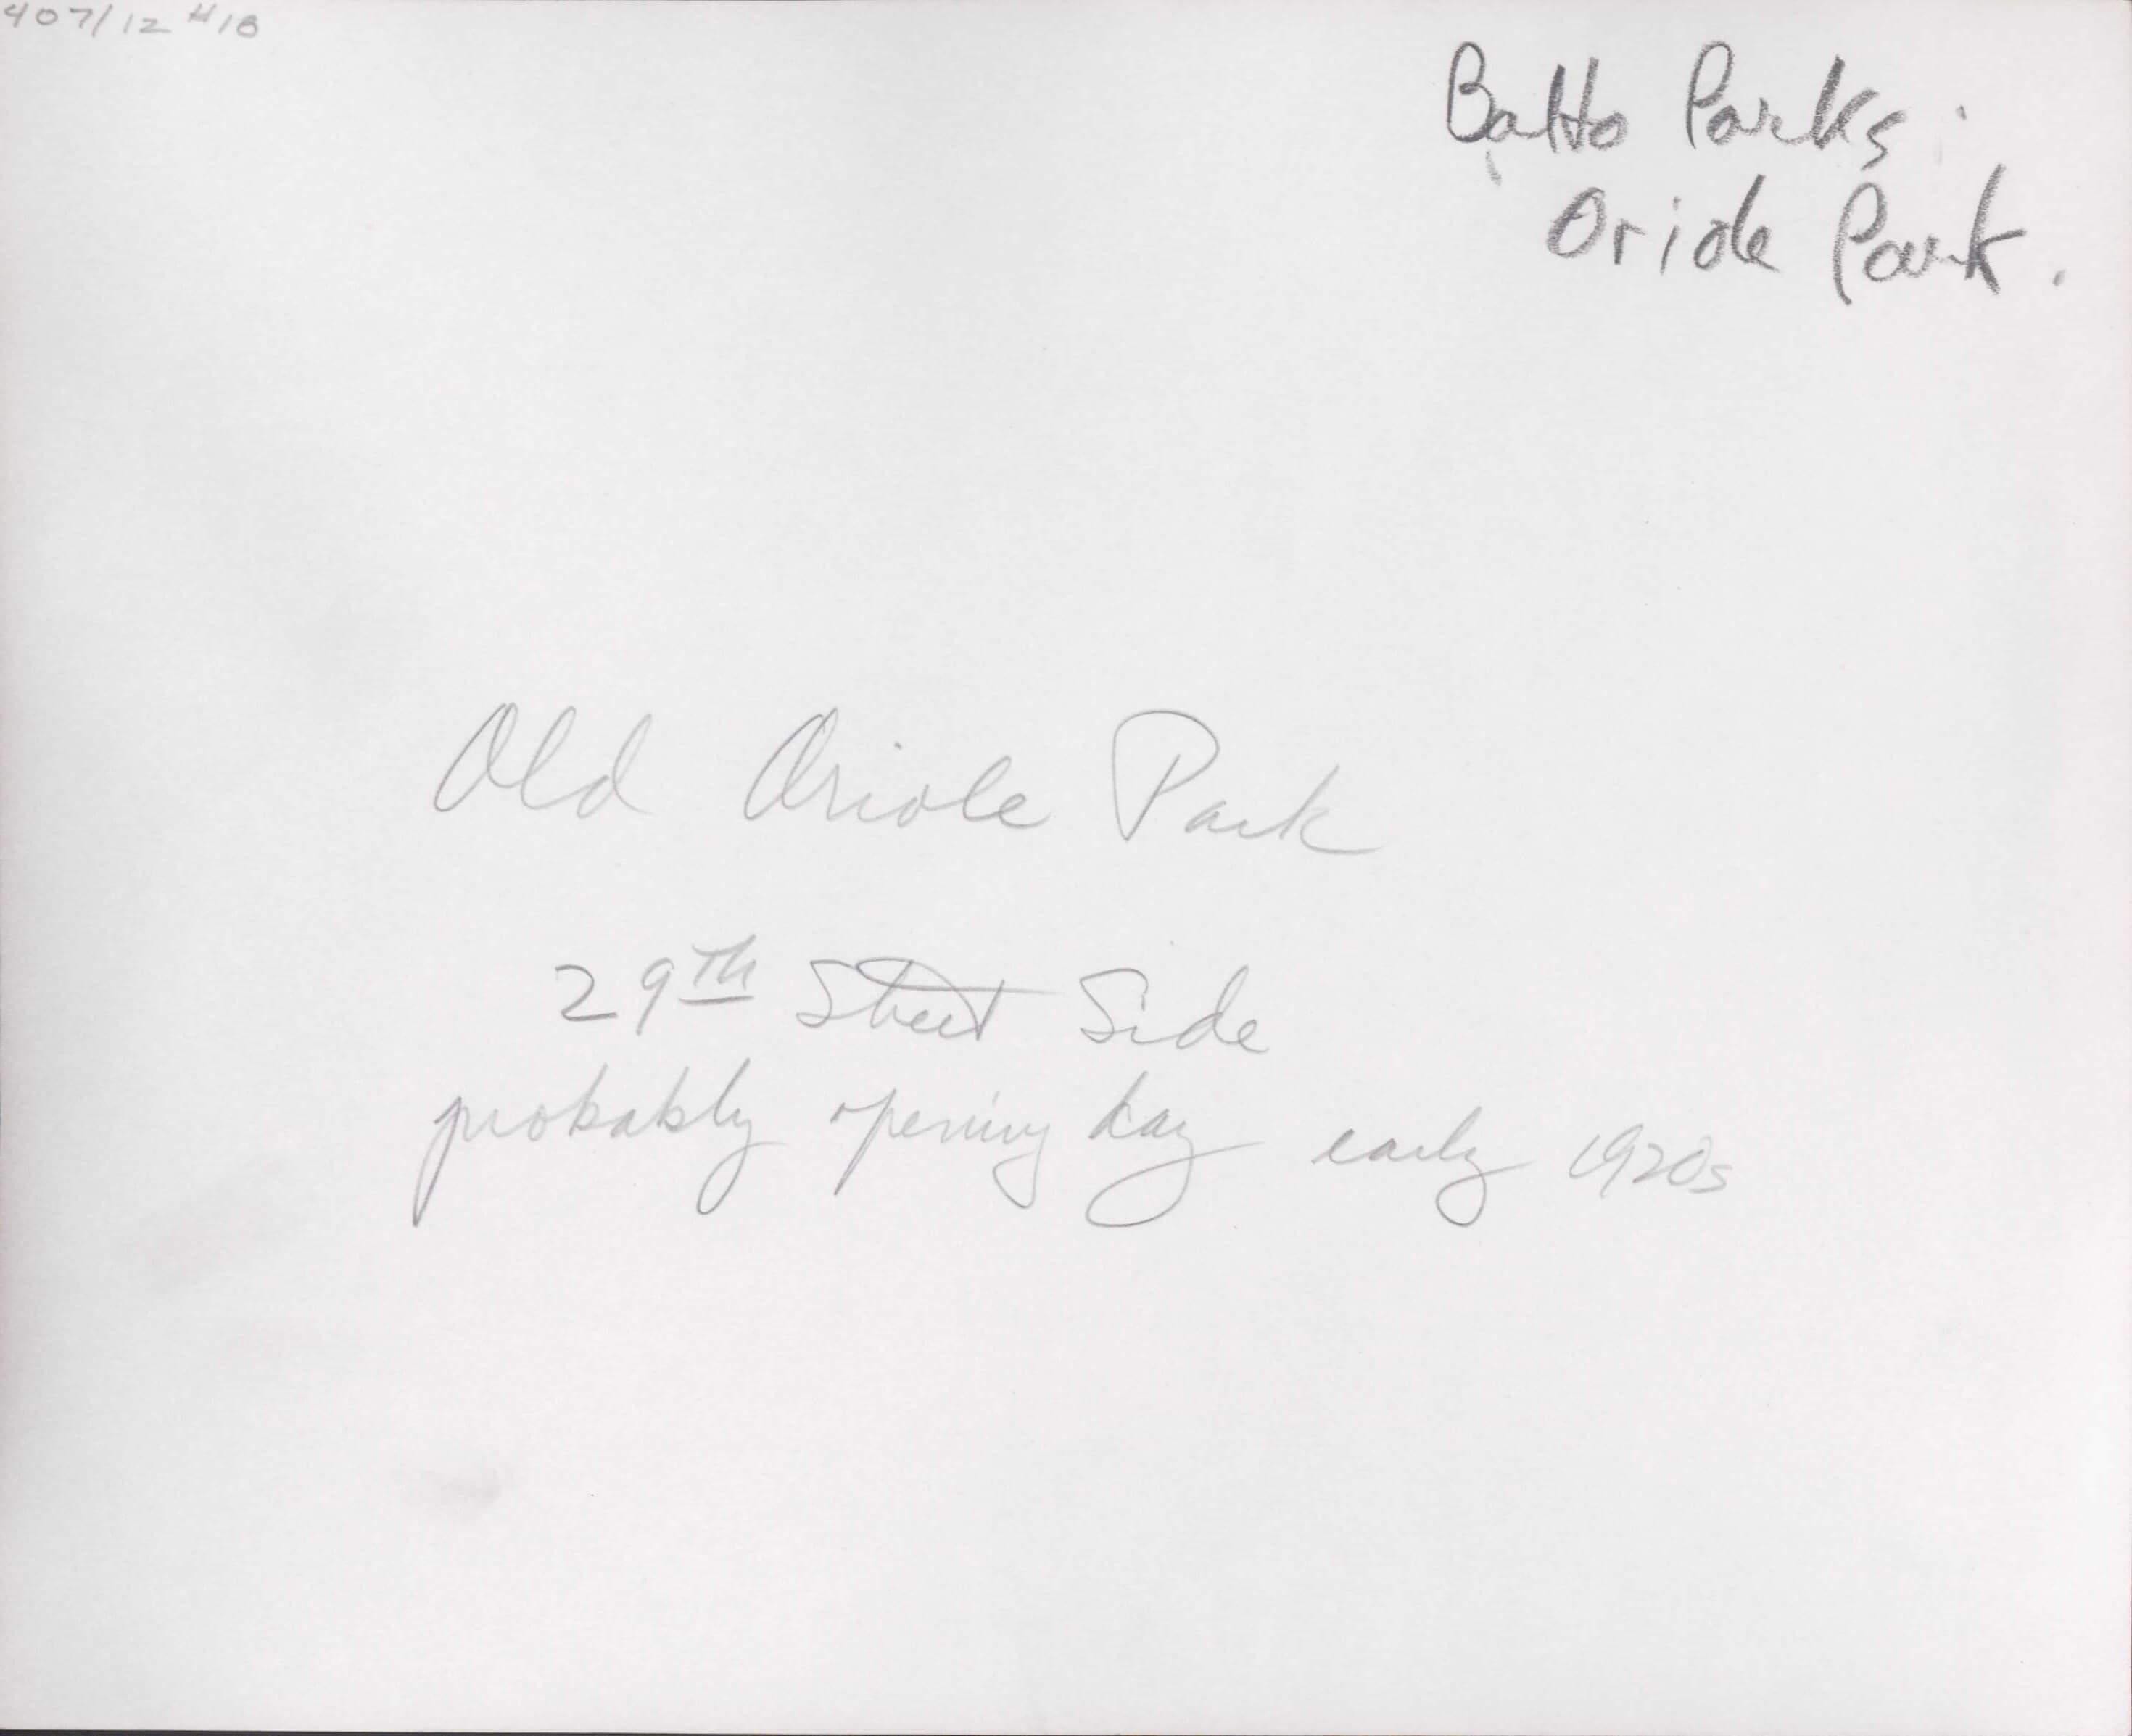 407/12 #18
Balto Parks.
Oriole Park.
Old Oriole Park
29th Street Side
probably opening day early 1920s